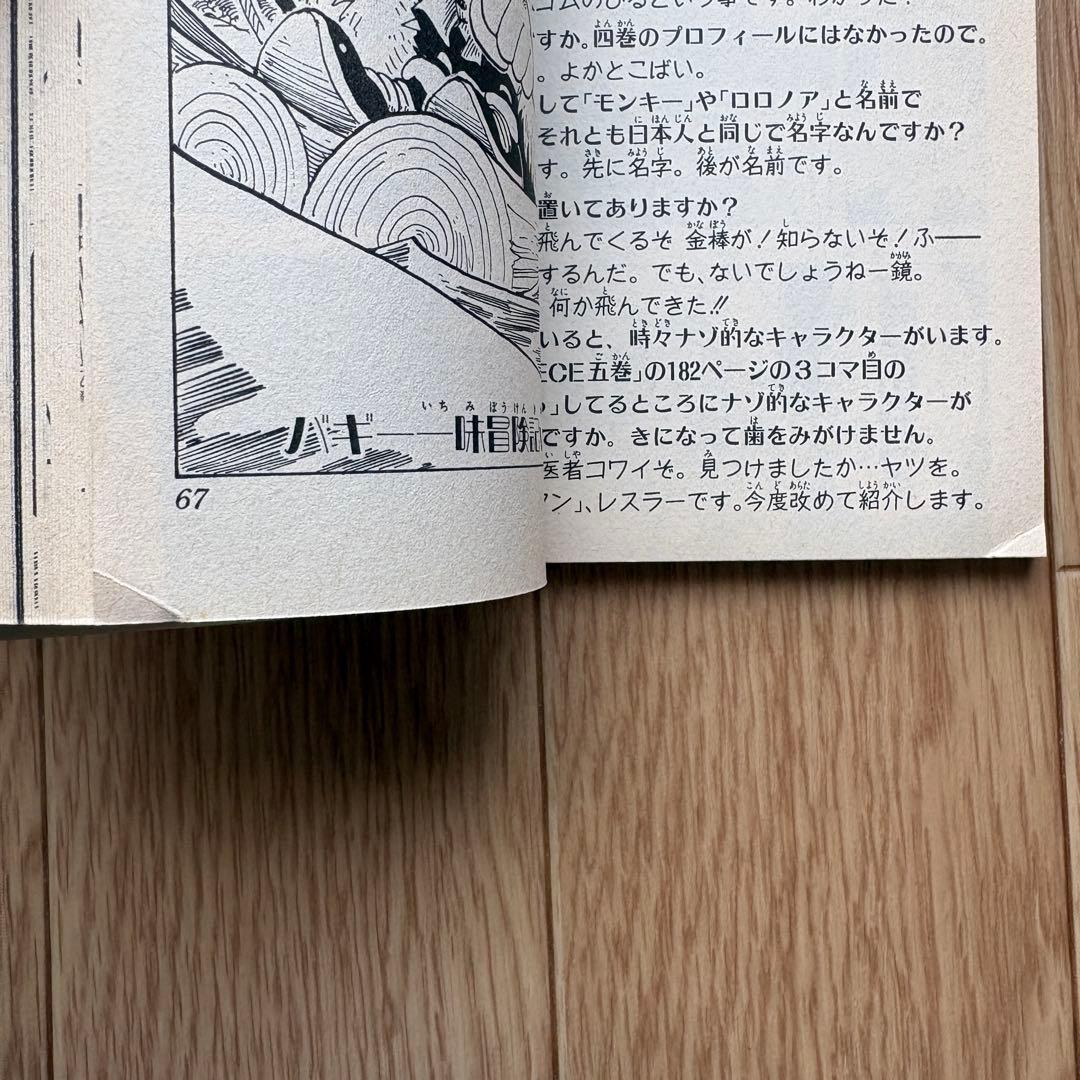 ゴムのびるという事です。わかった?
すか。四巻のプロフィールにはなかったので。
。よかとこばい。
して「モンキー」や「ロロノア」と名前で
それとも日本人と同じで名字なんですか?
す。先に名字。後が名前です。
置いてありますか?
飛んでくるぞ 金棒が!知らないぞ!ふ――
するんだ。でも、ないでしょうねー鏡。
何か飛んできた!!
いると、時々ナゾ的なキャラクターがいます。
ECE五巻」の182ページの3コマ目の
」してるところにナゾ的なキャラクターが
ですか。きになって歯をみがけません。
医者コワイぞ。見つけましたか…ヤツを。
ン」、レスラーです。今度改めて紹介します。
バギー一味冒険記
67